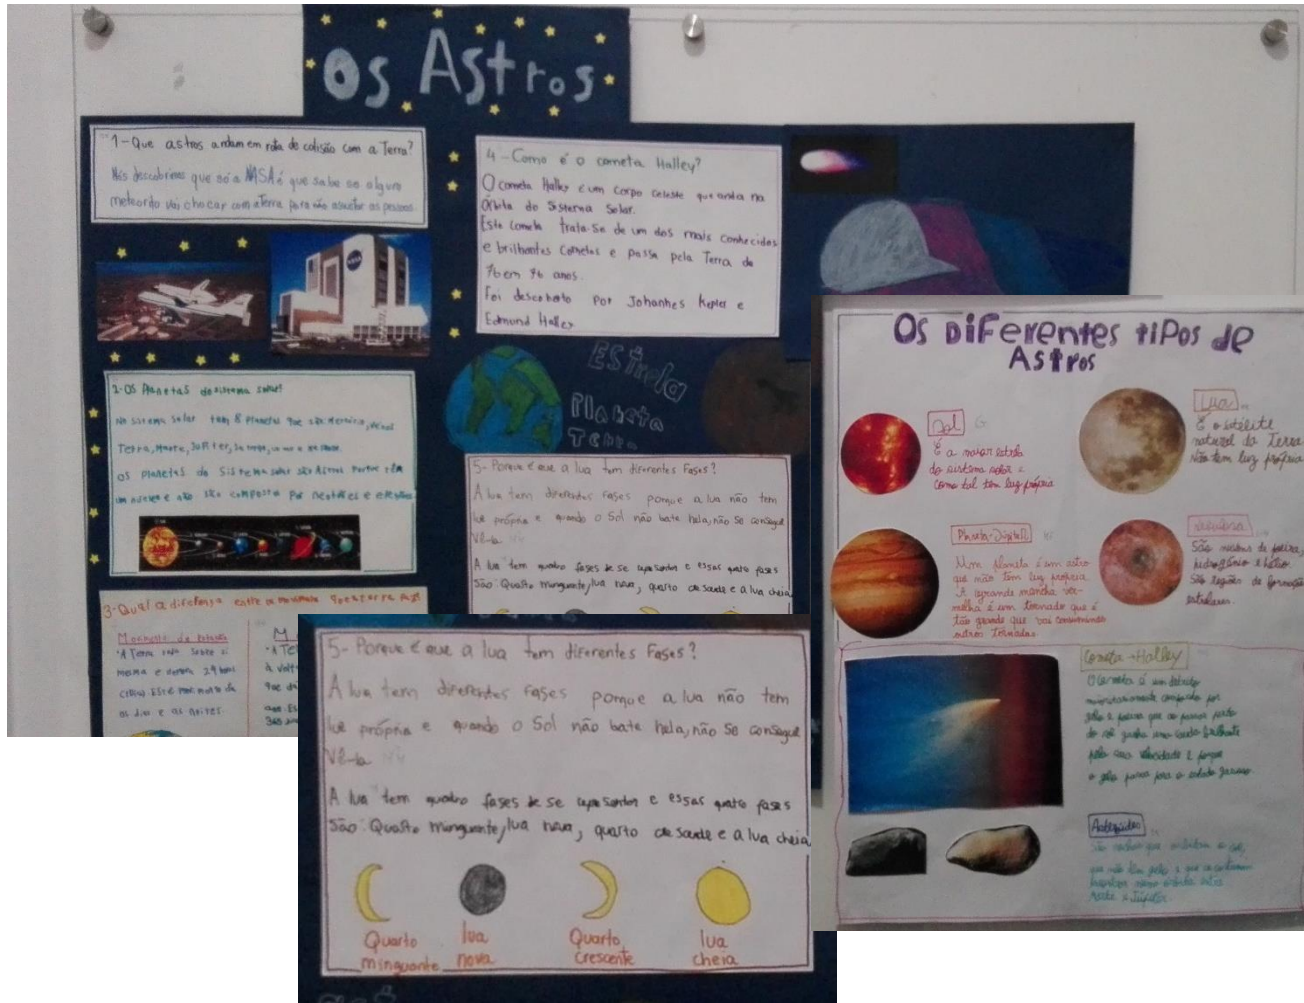 Os Astros
1-Que astros andam em rota de colisão com a Terra?
Nós descobrimos que só a NASA é que sabe se algum
meteordo vai chocar com a Terra para não as pessoas.
NASA
2-Os Planetas do sistema solar!
No sistema solar tem 8 planetas que são Mercúrio,
Terra, Marte,
os planetas do Sistema solar são Astros Porque têm
um núcleo e não são compostos por
3-Qual a diferença entre os
"A Terra roda sobre si
mesma e demora 24 horas
os dias e as noites.
4-Como é o cometa Halley?
O cometa Halley é um corpo celeste que anda na
órbita do Sistema Solar.
Este cometa trata-se de um dos mais conhecidos
e brilhantes Cometas e passa pela Terra de
76 em 76 anos.
Foi descoberto por Johannes e
Edmund Halley
Estrela
Planeta
Terra
5-Porque é que a lua tem diferentes Fases?
A lua tem diferentes fases porque a lua não tem
luz própria e quando o Sol não bate nela, não se consegue
Vê-la
A lua tem quatro fases de se e essas quatro fases
São: Quarto minguante, lua nova, quarto e a lua cheia
5-Porque é que a lua tem diferentes Fases?
A lua tem diferentes fases porque a lua não tem
luz própria e quando o Sol não bate nela, não se consegue
Vê-la
A lua tem quatro fases de se e essas quatro fases
São: Quarto minguante, lua nova, quarto e a lua cheia
Quarto
minguante
lua
nova
Quarto
Crescente
lua
cheia
Os Diferentes tipos de
Astros
Sol
É a maior estrela
do sistema solar e
como tal tem luz própria
Lua
É o satélite
natural da Terra
Não tem luz própria
Planeta-Júpiter
Um planeta é um astro
que não tem luz própria.
A grande mancha ver-
melha é um tornado que é
tão grande que vai consumindo
outros tornados.
São de poeira,
hidrogénio e hélio.
São regiões de formação
estrelares.
Cometa→Halley
O Cometa é um
por
gelo e poeira que ao passar perto
do sol ganha uma cauda brilhante
pela sua velocidade e porque
o gelo passa para o estado gasoso.
Asteróides
São rochas que orbitam o sol,
que não têm gelo e que se
Marte e Júpiter.